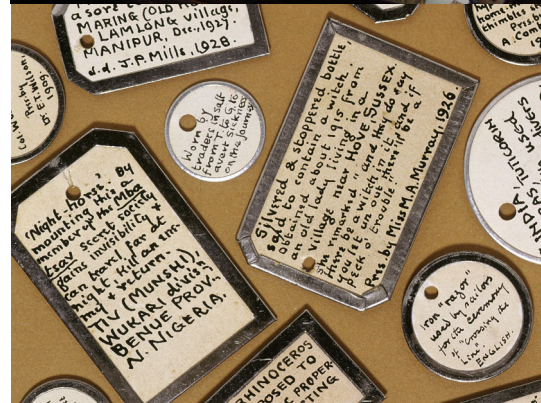 a sore t
MARING (OLD
LAMLONG village,
MANIPUR, Dec., 1927.
d.d. J.P. Mills, 1928.
thimbles
Pres. by
A. Com
Pres. by
E.T. Wilson,
1909.
Worn by
traders in salt
from T. to G. to
avert sickness
on the journey
Silvered & stoppered bottle,
said to contain a witch.
Obtained about 1915 from
an old lady living in a
village near HOVE, SUSSEX.
She remarked "and they do say
there be a witch in it and if
you let un out there it'll be a
peck o' trouble."
Pres. by Miss M.A. Murray, 1926
INDIA,
TUTICORIN
used
DIVERS
"Night-Horse". By
mounting this a
member of the Mba
tsav secret society
gains invisibility &
can travel far at
night, kill an en-
emy & return.
TIV (MUNSHI),
WUKARI division,
BENUE PROV.,
N. NIGERIA.
iron "razor"
used by sailors
for the ceremony
of "Crossing the
Line".
ENGLISH.
RHINOCEROS
POSED TO
PROPER-
TING